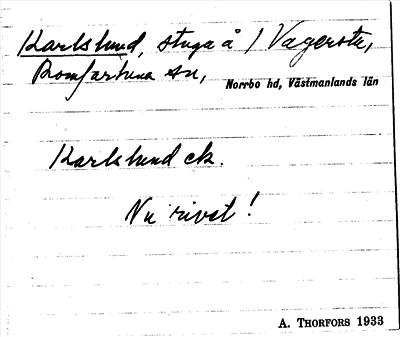 Karlslund, stuga å 1 Vagersta,
Romfartuna sn,
Norrbo hd, Västmanlands län
Karlslund ek.
Nu rivet!
A. THORFORS 1933